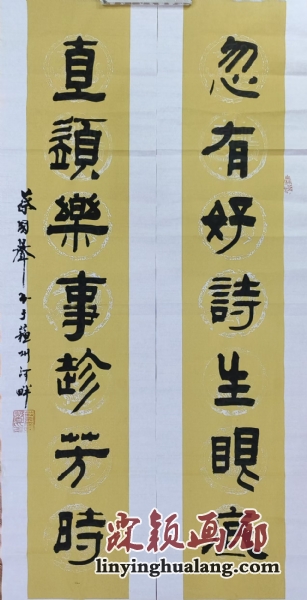 忽有好詩生眼底
直須樂事趁芳時
蔡国聲书于蘇州河畔
霖颖画廊
linyinghualang.com